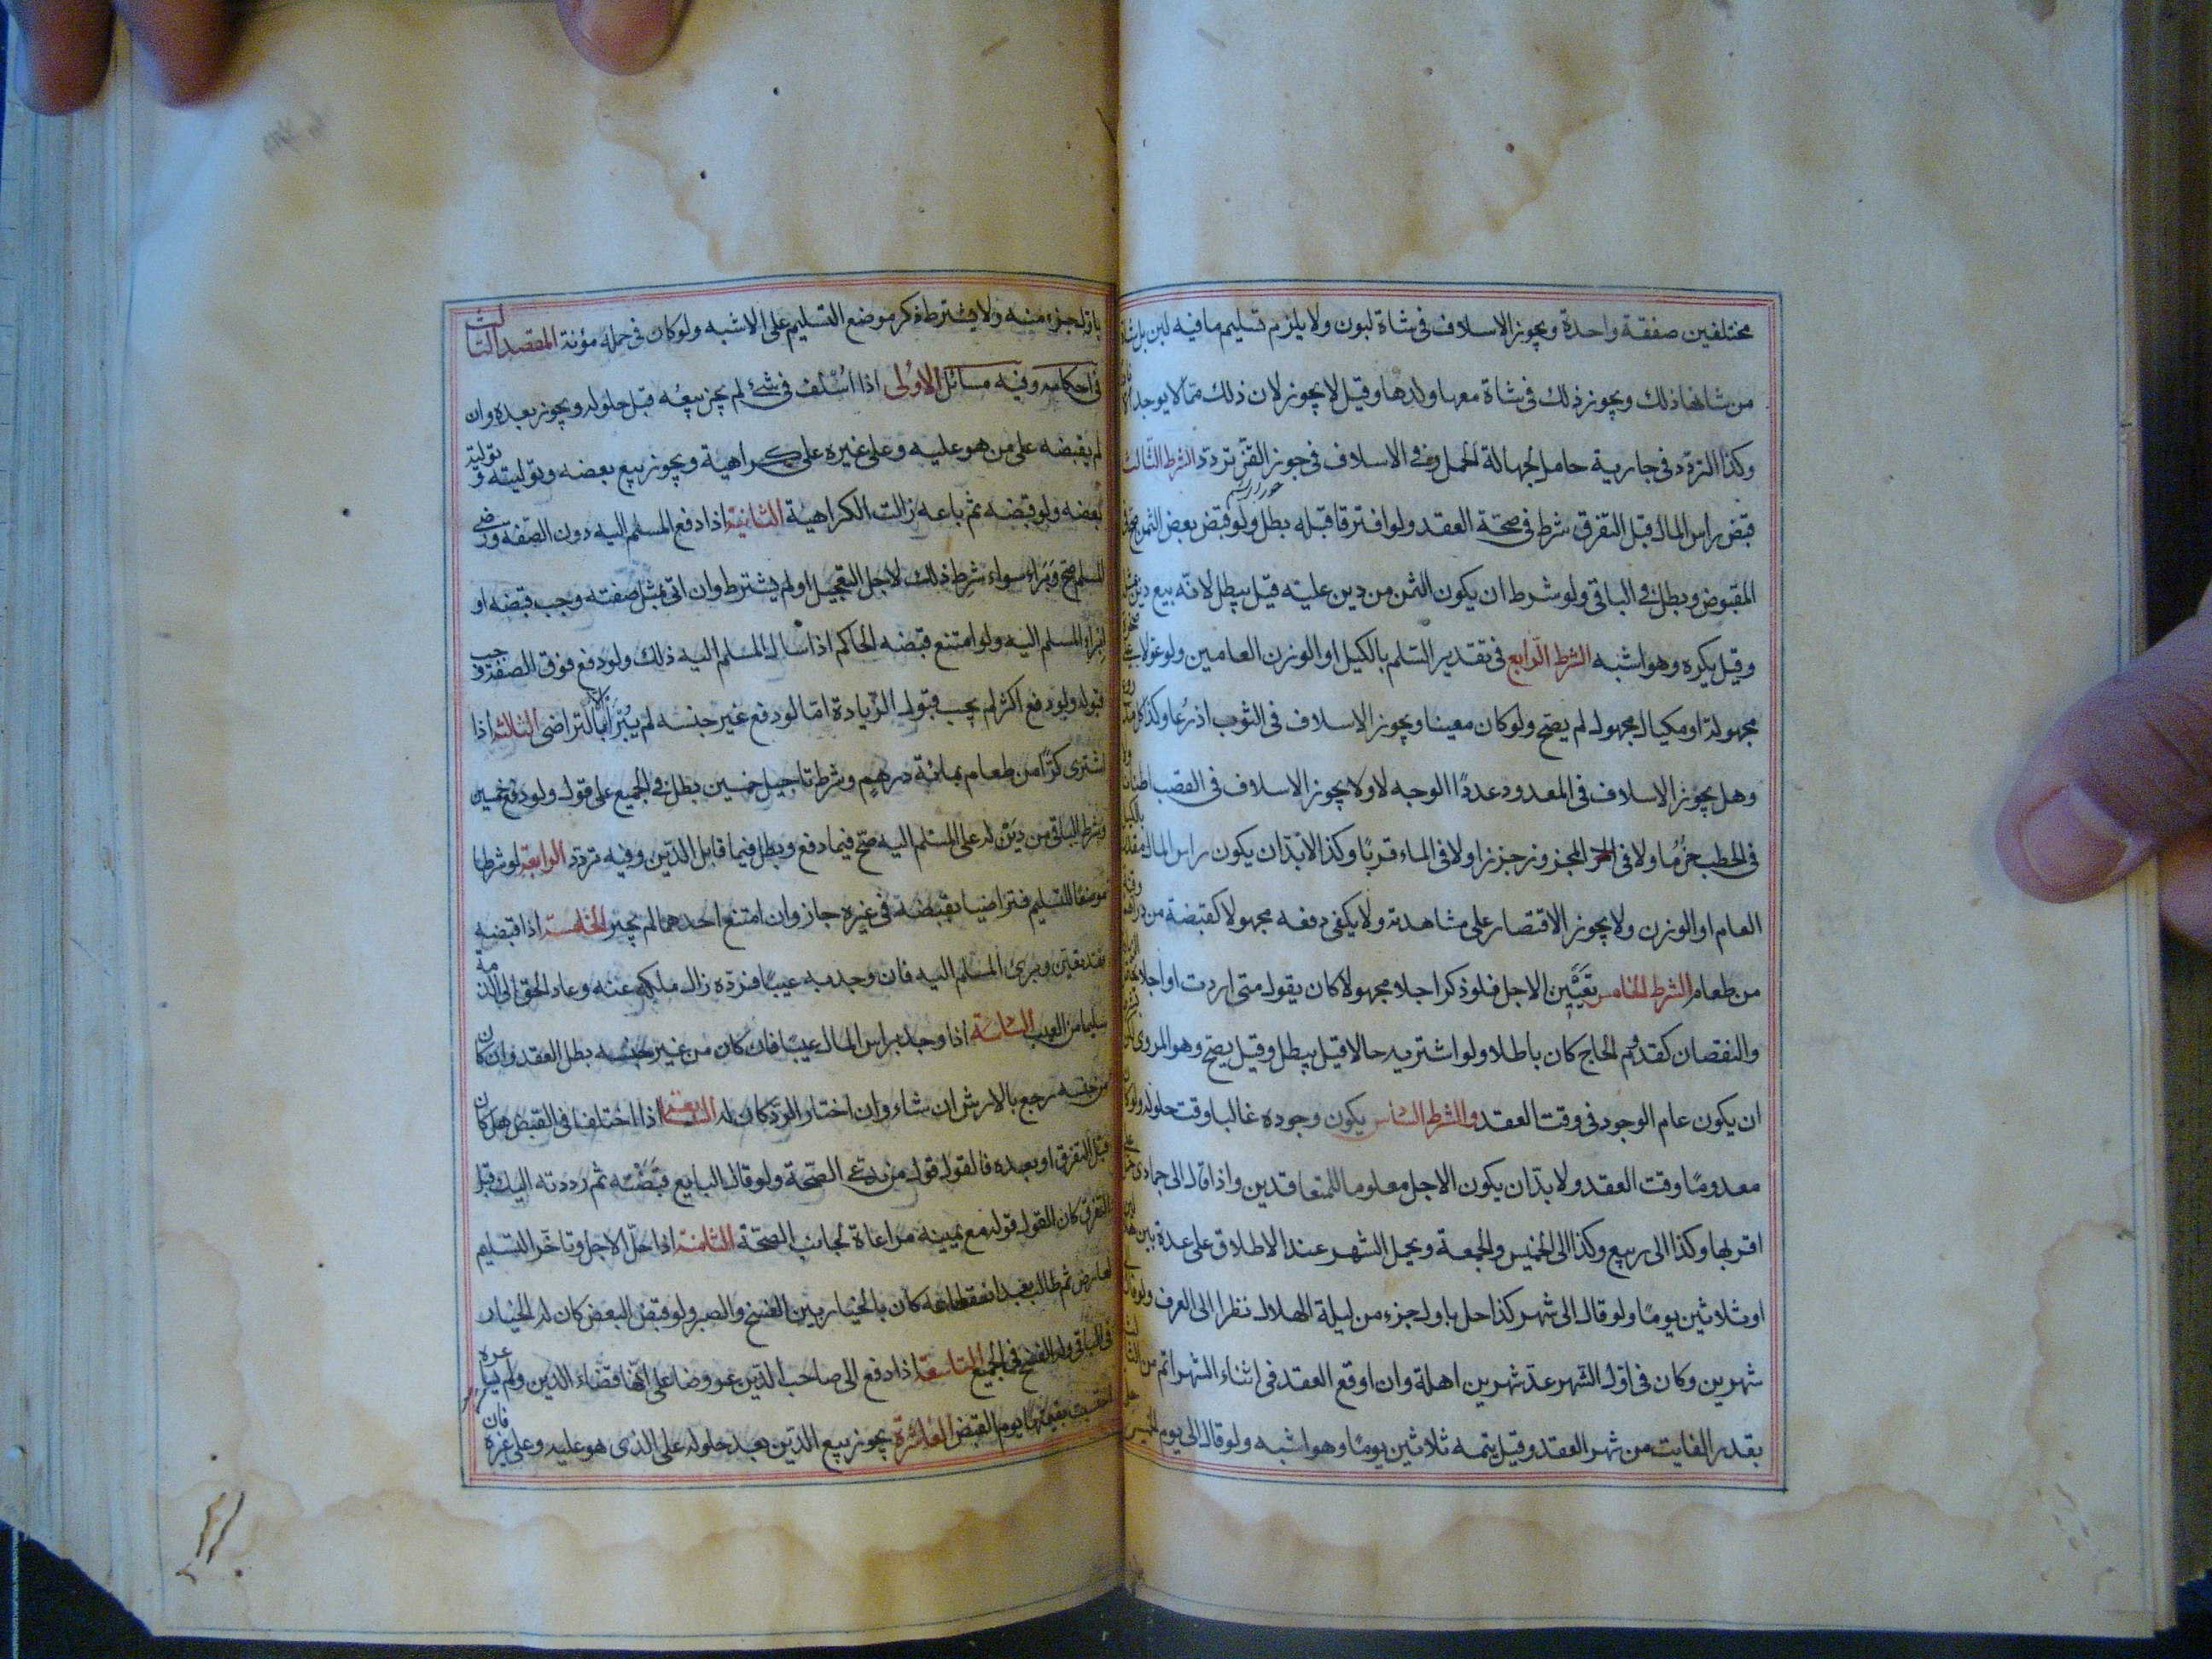 مختلفين صفقة واحدة ويجوز الاسلاف في شاة لبون ولا يلزم تسليم ما فيه لبن بل شاة
من شانها ذلك ويجوز ذلك في شاة معها ولدها وقيل لا يجوز لان ذلك مما لا يوجد الا
وكذا التردد في جارية حامل لجهالة الحمل وفي الاسلاف في جوز القز تردد الشرط الثالث
قبض راس المال قبل التفرق شرط في صحة العقد ولو افترقا قبله بطل ولو قبض بعض الثمن صح في
المقبوض وبطل في الباقي ولو شرط ان يكون الثمن من دين عليه قيل يبطل لانه بيع دين بمثله
وقيل يكره وهو اشبه الشرط الرابع في تقدير السلم بالكيل او الوزن العامين ولو عولا على
مجهولة او مكيال مجهول لم يصح ولو كان معينا ويجوز الاسلاف في الثوب اذرعا وكذا كل مذروع
وهل يجوز الاسلاف في المعدود عددا الوجه لا ولا يجوز الاسلاف في القصب اطنانا
في الحطب حزما ولا في المجزوز جززا ولا في الماء قربا وكذا لا بد ان يكون راس المال مقدرا بالكيل
العام او الوزن ولا يجوز الاقتصار على مشاهدته ولا يكفي دفعه مجهولا كقبضة من دراهم
من طعام الشرط الخامس تعيين الاجل فلو ذكر اجلا مجهولا كان يقول متى اردت او اجلا
والنقصان كقدوم الحاج كان باطلا ولو اشتريه حالا قيل يبطل وقيل يصح وهو المروي لكن
ان يكون عام الوجود في وقت العقد والشرط السادس يكون وجوده غالبا وقت حلوله ولو كان
معدوما وقت العقد ولا بد ان يكون الاجل معلوما للمتعاقدين واذا قال الى جمادى حمل على
اقربها وكذا الى ربيع وكذا الى الخميس والجمعة ويحمل الشهر عند الاطلاق على عدة بين هلالين
او ثلاثين يوما ولو قال الى شهر كذا حل باول جزء من ليلة الهلال نظرا الى العرف ولو قال
شهرين وكان في اول الشهر عد شهرين اهلة وان اوقع العقد في اثناء الشهر اتم من الثالث
بقدر الفايت من شهر العقد وقيل يتمه ثلاثين يوما وهو اشبه ولو قال الى يوم الخميس حل
باول جزء منه ولا يشترط ذكر موضع التسليم على الاشبه ولو كان في حمله مؤنة المقصد الثالث
في احكامه وفيه مسائل الاولى اذا اسلف في شئ لم يجز بيعه قبل حلوله ويجوز بعده وان
لم يقبضه على من هو عليه وعلى غيره على كراهية ويجوز بيع بعضه وتوليته وتولية
بعضه ولو قبضه ثم باعه زالت الكراهية الثانية اذا دفع المسلم اليه دون الصفة ورضي
المسلم صح وبراء سواء شرط ذلك لاجل التعجيل او لم يشترط وان اتى بمثل صفته وجب قبضه او
ابراء المسلم اليه ولو امتنع قبضه الحاكم اذا سال المسلم اليه ذلك ولو دفع فوق الصفة وجب
قبوله ولو دفع اكثر لم يجب قبول الزيادة اما لو دفع غير جنسه لم يبرأ الا بالتراضي الثالثة اذا
اشترى كرا من طعام بمائة درهم وشرط تاجيل خمسين بطل في الجميع على قول ولو دفع خمسين
وشرط الباقي من دين له على المسلم اليه صح فيما دفع وبطل فيما قابل الدين وفيه تردد الرابعة لو شرطا
موضعا للتسليم فتراضيا بقبضه في غيره جاز وان امتنع احدهما لم يجبر الخامسة اذا قبضه
فقد تعين وبرئ المسلم اليه فان وجد به عيبا فرده زال ملكه عنه وعاد الحق الى الذمة
سليما من العيب السادسة اذا وجد براس المال عيبا فان كان من غير جنسه بطل العقد وان كان
من جنسه رجع بالارش ان شاء وان اختار الرد كان له السابعة اذا اختلفا في القبض هل كان
قبل التفرق او بعده فالقول قول من يدعي الصحة ولو قال البايع قبضته ثم رددته اليك قبل
التفرق كان القول قوله مع يمينه مراعاة لجانب الصحة الثامنة اذا حل الاجل وتاخر التسليم
لعارض ثم طالب بعد انقطاعه كان بالخيار بين الفسخ والصبر ولو قبض البعض كان له الخيار
في الباقي وله الفسخ في الجميع التاسعة اذا دفع الى صاحب الدين عروضا على انها قضاء الدين ولم يساعره
احتسب بقيمتها يوم القبض العاشرة يجوز بيع الدين بعد حلوله على الذي هو عليه وعلى غيره فان